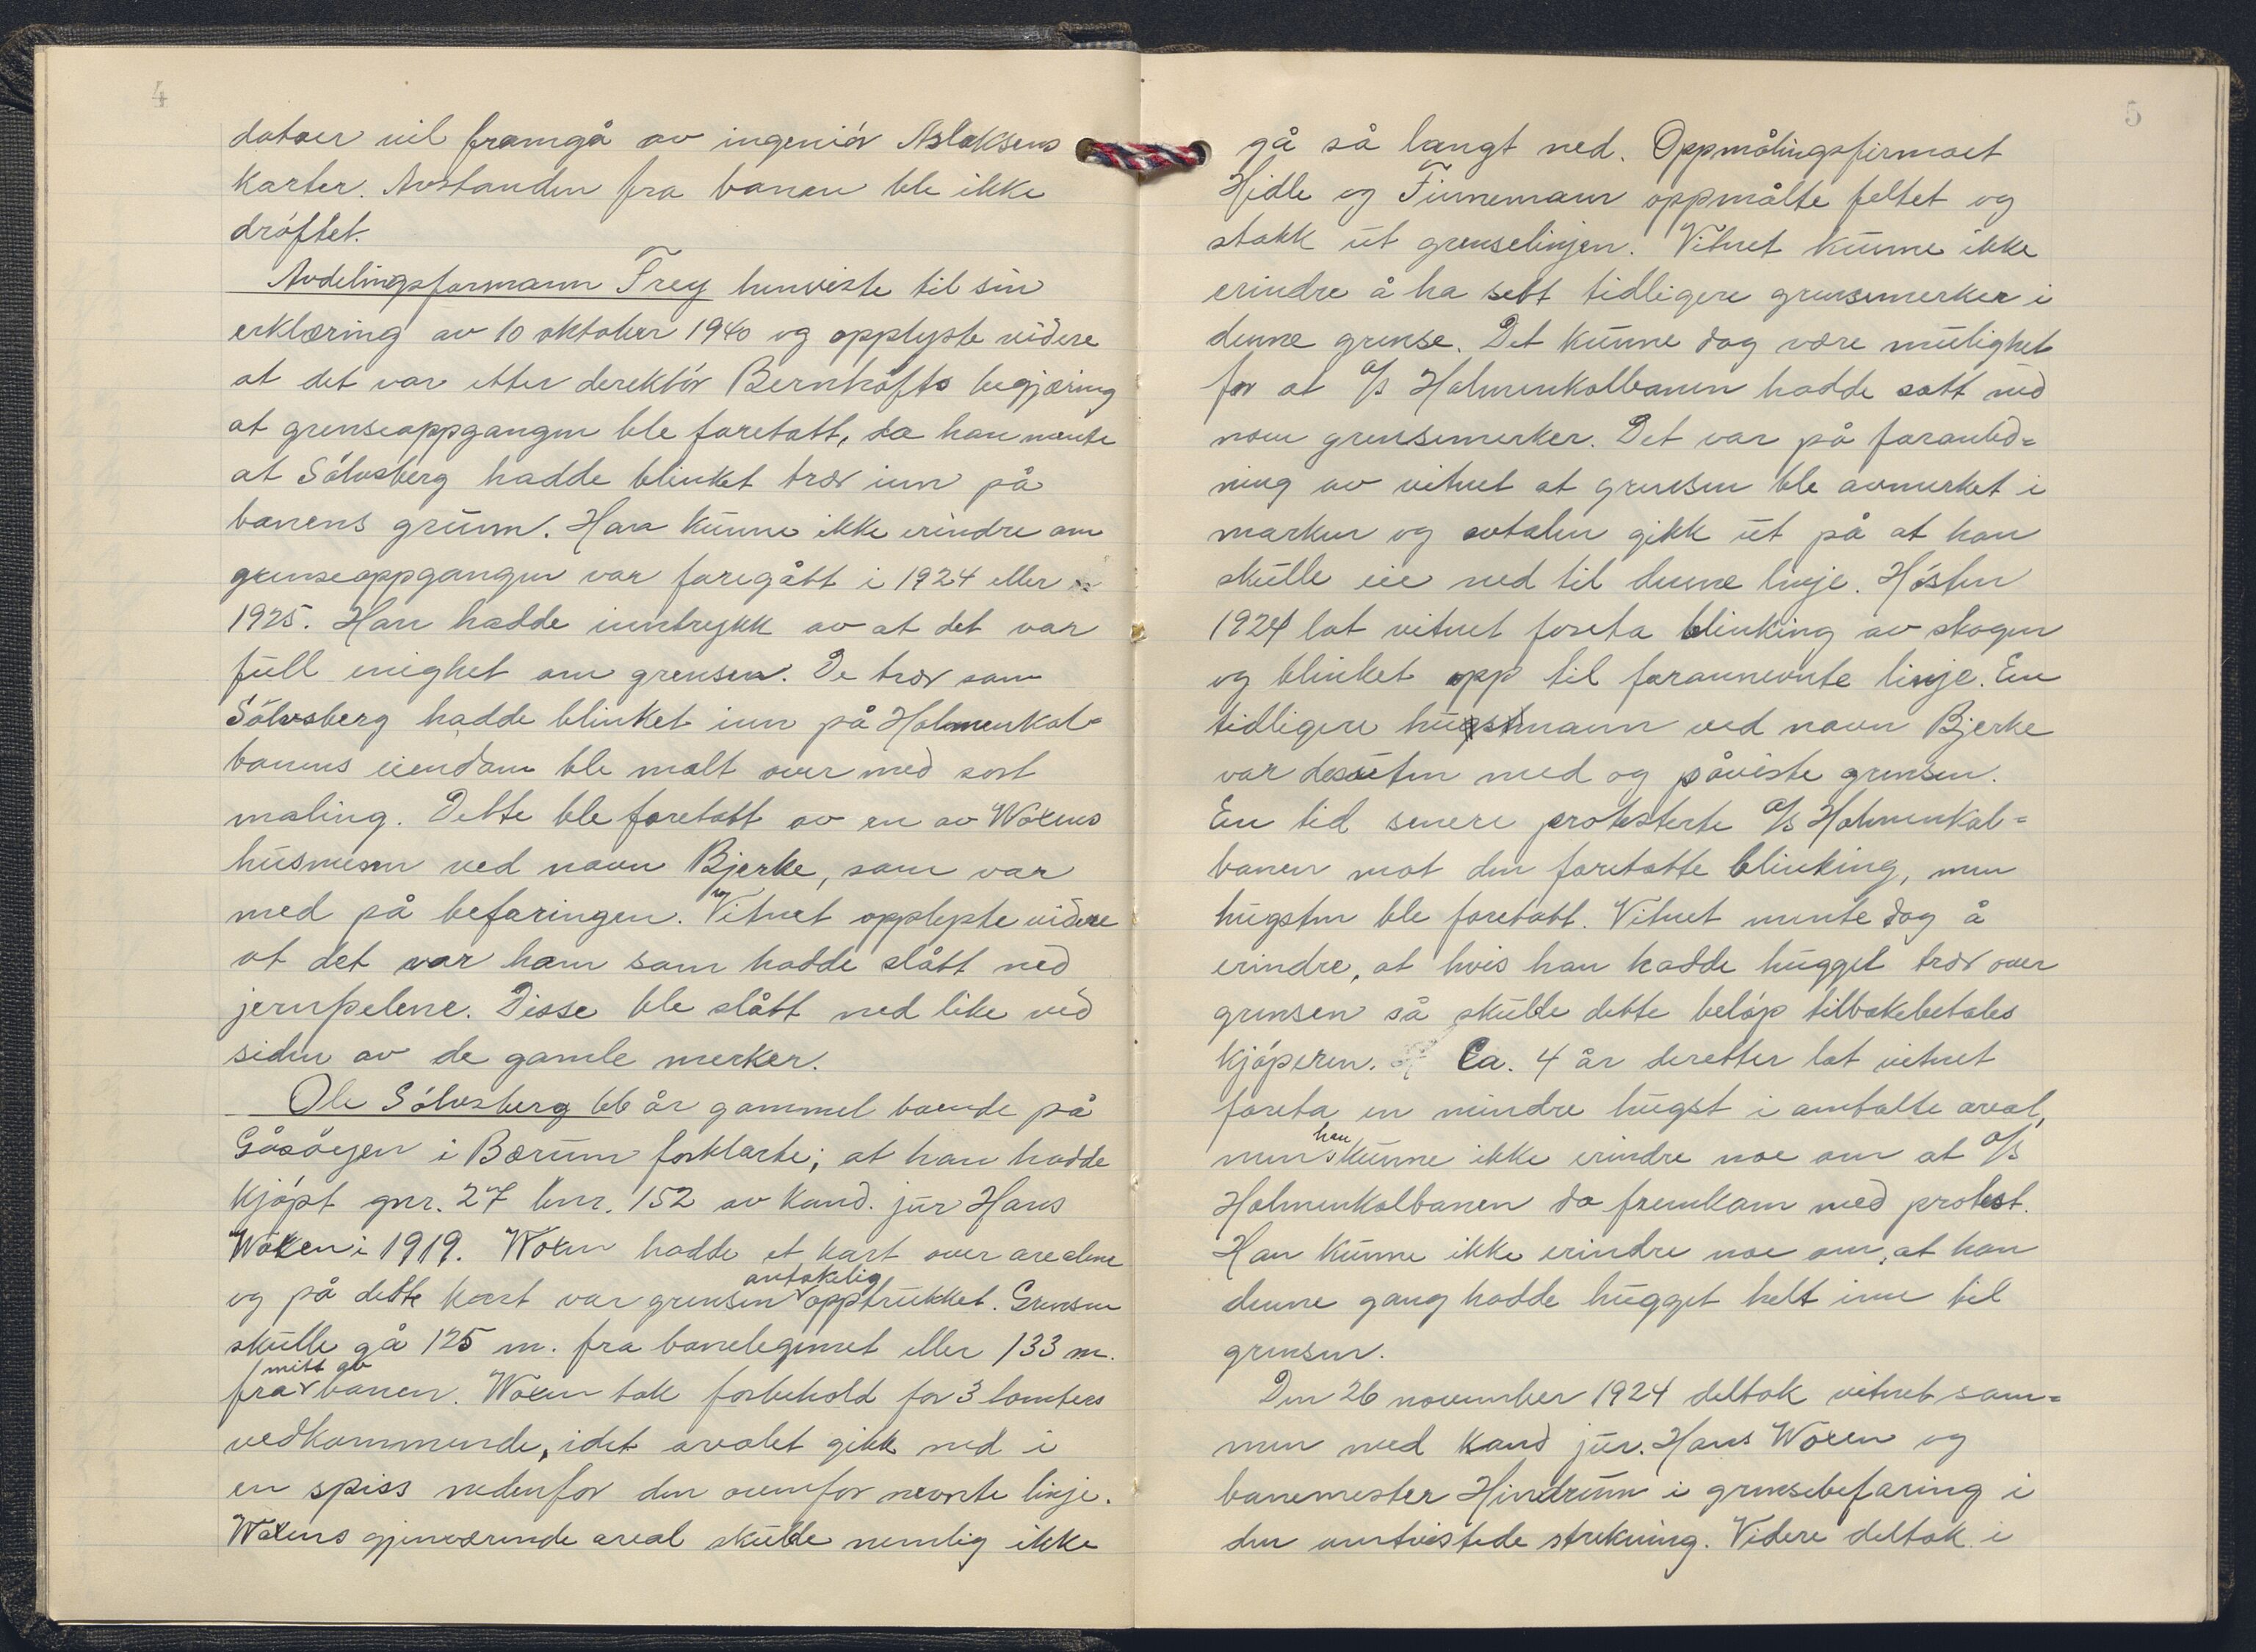 4
datoer vil framgå av ingeniør Aslaksens
karter. Avstanden fra banen ble ikke
drøftet.
Avdelingsformann Frey henviste til sin
erklæring av 10 oktober 1940 og opplyste videre
at det var etter derektør Bernhofts begjæring
at grenseoppgangen ble foretatt, da han mente
at Sølvsberg hadde blinket trær inn på
banens grunn. Han kunne ikke erindre om
grenseoppgangen var foregått i 1924 eller
1925. Han hadde inntrykk av at det var
full enighet om grensen. De trær som
Sølvsberg hadde blinket inn på Holmenkol=
banens eiendom ble malt over med sort
maling. Dette ble foretatt av en av Woxens
husmenn ved navn Bjerke, som var
med på befaringen. Vitnet opplyste videre
at det var ham som hadde slått ned
jernpelene. Disse ble slått ned like ved
siden av de gamle merker.
Ole Sølvsberg 66 år gammel boende på
Gåsøyen i Bærum forklarte; at han hadde
kjøpt gnr. 27 bnr. 152 av kand. jur Hans
Woxen i 1919. Woxen hadde et kart over arealene
og på dette kart var grensen antakelig opptrukket. Grensen
skulle gå 125 m. fra banelegemet eller 133 m.
fra mitt av banen. Woxen tok forbehold for 3 tomters
vedkommende, idet arealet gikk ned i
en spiss nedenfor den ovenfor nevnte linje.
Woxens gjenværende areal skulde nemlig ikke
5
gå så langt ned. Oppmålingsfirmaet
Hidle og Finnemann oppmålte feltet og
stakk ut grenselinjen. Vitnet kunne ikke
erindre å ha sett tidligere grensemerker i
denne grense. Det kunne dog være mulighet
for at A/S Holmenkolbanen hadde satt ned
noen grensemerker. Det var på foranled=
ning av vitnet at grensen ble avmerket i
marken og avtalen gikk ut på at han
skulle eie ned til denne linje. Høsten
1924 lot vitnet foreta blinking av skogen
og blinket opp tilforannevnte linje. En
tidligere husmann ved navn Bjerke
var desuten med og påviste grensen.
En tid senere protesterte A/S Holmenkol=
banen mot den foretatte blinking, men
hugsten ble foretatt. Vitnet mente dog å
erindre, at hvis han hadde hugget trær over
grensen så skulde dette beløp tilbakebetales
kjøperen. Ca. 4 år deretter lot vitnet
foreta en mindre hugst i omtalte areal,
men han kunne ikke erindre noe om at A/S
Holmenkolbanen da fremkom med protest.
Han kunne ikke erindre noe om, at han
denne gang hadde hugget helt inn til
grensen.
Den 26 november 1924 deltok vitnet sam=
men med kand jur. Hans Woxen og
banemester Hindrum i grensebefaring i
den omtvistede strekning. Videre deltok i